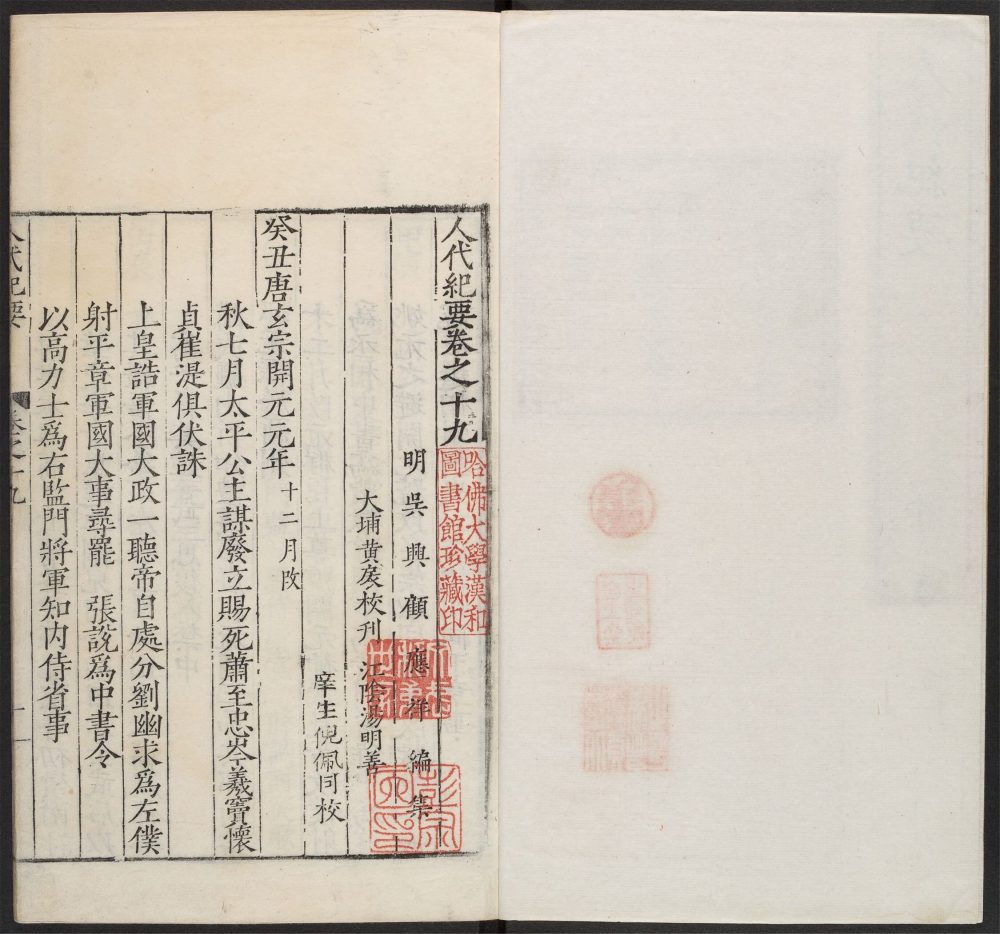 人代紀要卷之十九
哈佛大學漢和
圖書館珍藏印
明吳興顧應祥編集
大埔黃扆校刋 江陰湯明善
庠生倪佩同校
癸丑唐玄宗開元元年十二月改
秋七月太平公主謀廢立賜死蕭至忠岑羲竇懷
貞崔湜俱伏誅
上皇誥軍國大政一聽帝自處分劉幽求爲左僕
射平章軍國大事尋罷 張說爲中書令
以高力士爲右監門將軍知内侍省事
人代紀要 卷之十九 一